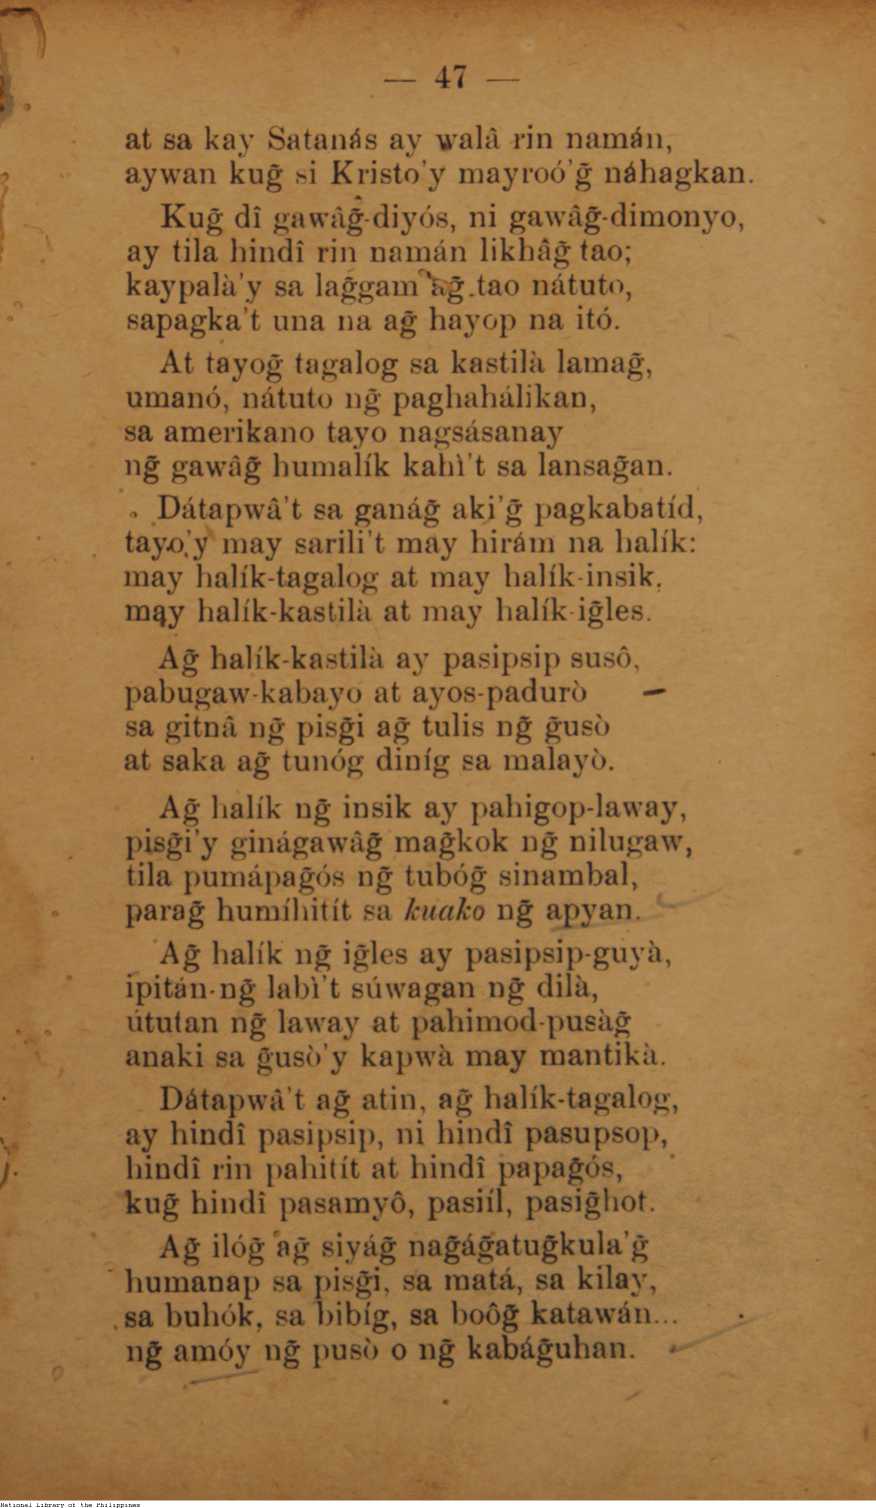 — 47 —
at sa kay Satanás ay walâ rin namán,
aywan kug̃ si Kristo'y mayroó'g̃ náhagkan.
Kug̃ dî gawâg̃-diyós, ni gawâg̃-dimonyo,
ay tila hindî rin namán likhâg̃ tao;
kaypalà'y sa lag̃gam ag̃ tao nátuto,
sapagka't una na ag̃ hayop na itó.
At tayog̃ tagalog sa kastilà lamag̃,
umanó, nátuto ng̃ paghahálikan,
sa amerikano tayo nagsásanay
ng̃ gawâg̃ humalík kahì't sa lansag̃an.
Dátapwâ't sa ganág̃ aki'g̃ pagkabatíd,
tayo'y may sarili't may hirám na halík:
may halík-tagalog at may halík-insik,
may halík-kastilà at may halík-ig̃les.
Ag̃ halík-kastilà ay pasipsip susô,
pabugaw-kabayo at ayos-padurò
sa gitnâ ng̃ pisg̃i ag̃ tulis ng̃ g̃usò
at saka ag̃ tunóg diníg sa malayò.
Ag̃ halík ng̃ insik ay pahigop-laway,
pisg̃i'y ginágawâg̃ mag̃kok ng̃ nilugaw,
tila pumápag̃ós ng̃ tubóg̃ sinambal,
parag̃ humíhitít sa kuako ng̃ apyan.
Ag̃ halík ng̃ ig̃les ay pasipsip-guyà,
ipitán-ng̃ labì't súwagan ng̃ dilà,
ututan ng̃ laway at pahimod-pusàg̃
anaki sa g̃usò'y kapwà may mantikà.
Dátapwâ't ag̃ atin, ag̃ halík-tagalog,
ay hindî pasipsip, ni hindî pasupsop,
hindî rin pahitít at hindî papag̃ós,
kug̃ hindî pasamyô, pasiíl, pasig̃hot.
Ag̃ ilóg̃ ag̃ siyág̃ nag̃ág̃atug̃kula'g̃
humanap sa pisg̃i, sa matá, sa kilay,
sa buhók, sa bibíg, sa boôg̃ katawán...
ng̃ amóy ng̃ pusò o ng̃ kabág̃uhan.
National Library of the Philippines